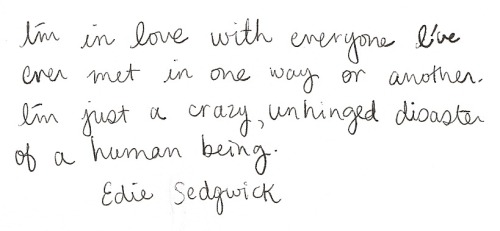 I'm in love with everyone I've
ever met in one way or another.
I'm just a crazy, unhinged disaster
of a human being.
Edie Sedgwick